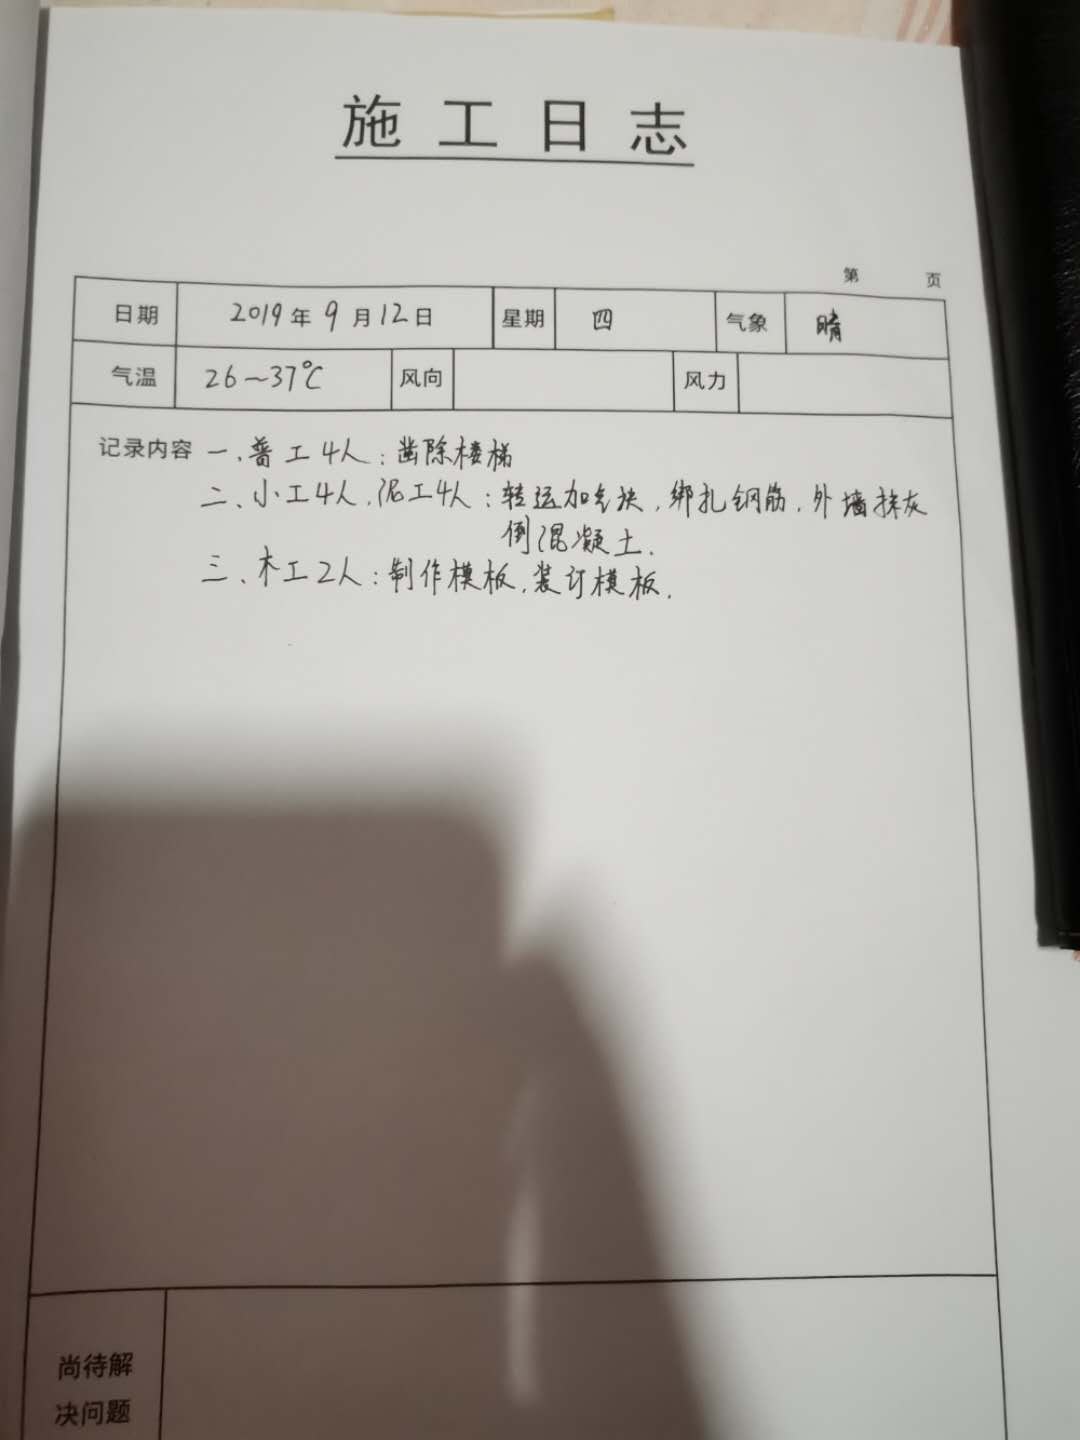 施工日志
第 页
日期 2019年9月12日 星期 四 气象 晴
气温 26~37℃ 风向 风力
记录内容 一、普工4人：凿除楼梯
二、小工4人、泥工4人：转运加气块，绑扎钢筋，外墙抹灰
倒混凝土.
三、木工2人：制作模板，装订模板.
尚待解
决问题